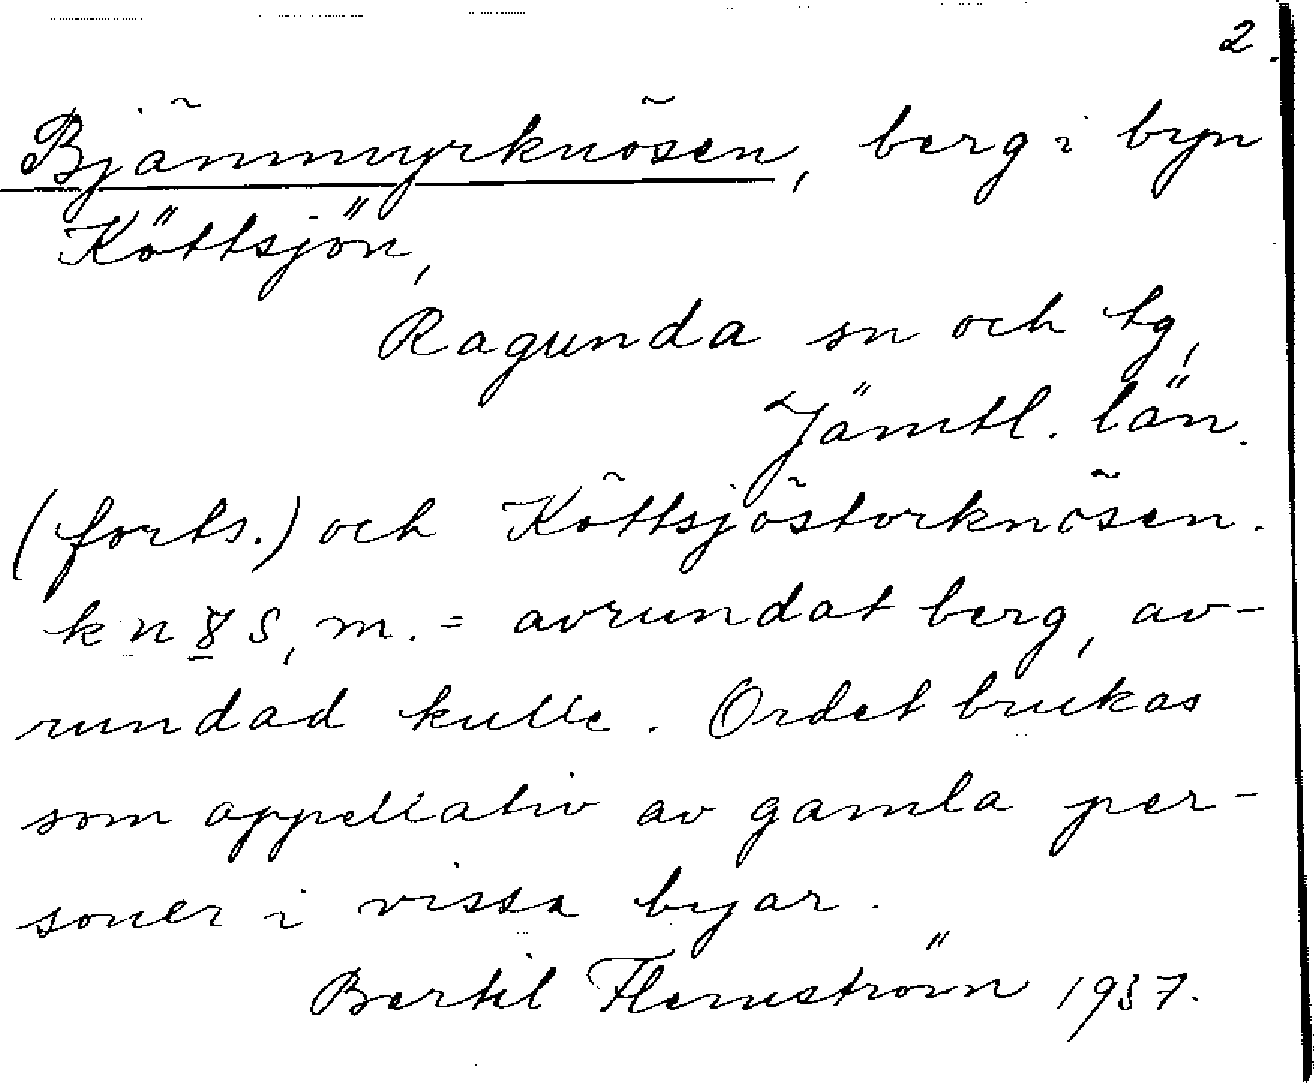 2.
Bjämmyrknösen, berg i byn
Köttsjön,
Ragunda sn och tg,
Jämtl. län.
(forts.) och Köttsjöstorknösen.
kn8s, m. = avrundat berg, av-
rundad kulle. Ordet brukas
som appellativ av gamla per-
soner i vissa byar.
Bertil Flemström 1937.